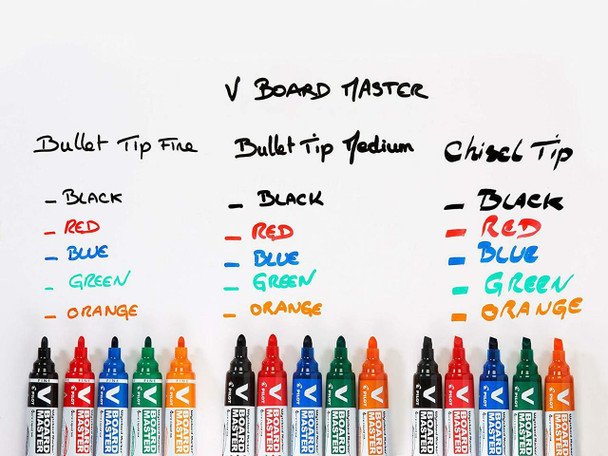 V BOARD MASTER
Bullet Tip Fine
- BLACK
- RED
- BLUE
- GREEN
- ORANGE
Bullet Tip Medium
- BLACK
- RED
- BLUE
- GREEN
- ORANGE
Chisel Tip
- BLACK
- RED
- BLUE
- GREEN
- ORANGE
FINE
FINE
FINE
FINE
FINE
PILOT V BOARD MASTER
PILOT V BOARD MASTER
PILOT V BOARD MASTER
PILOT V BOARD MASTER
PILOT V BOARD MASTER
PILOT V BOARD MASTER
PILOT V BOARD MASTER
PILOT V BOARD MASTER
PILOT V BOARD MASTER
PILOT V BOARD MASTER
PILOT V BOARD MASTER
PILOT V BOARD MASTER
PILOT V BOARD MASTER
PILOT V BOARD MASTER
PILOT V BOARD MASTER